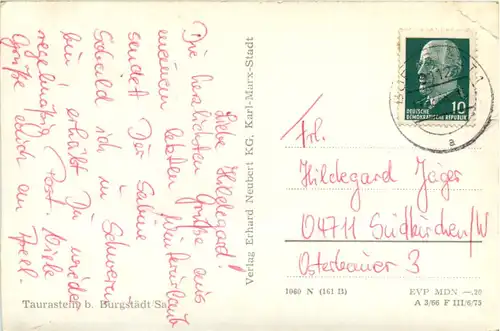 Liebe Hildegard!
Die herzlichsten Grüße aus
meinem letzten Winterurlaub
sendet Dir Sabine
Sobald ich in Schwerin
bin erhälst Du wieder
regelmäßig Post. Viele
Grüße auch an
Taurastein b. Burgstädt Sa.
Verlag Erhard Neubert KG, Karl-Marx-Stadt
10
DEUTSCHE
DEMOKRATISCHE REPUBLIK
a
Frl.
Hildegard Jager
04711 Südkirchen/W
Osterbauer 3
1969 N (161 B)
EVP MDN —,20
A 3/66 F III/6/73